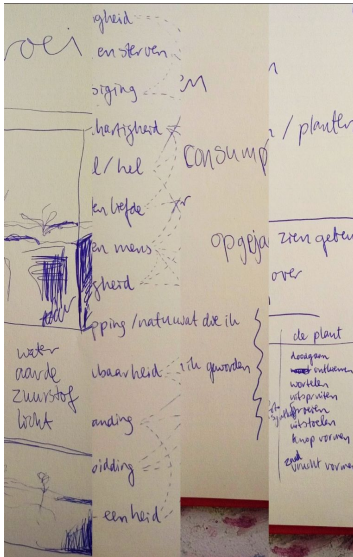 roei
water
aarde
zuurstof
locht
gheid
en sterven
siging
hartigheid
l/hel
en liefde
en mens
gheid
pping/natuur
baarheid
anding
bidding
eenheid
en
consump
opgeja
wat die ik
ik geworden
n
/ planten
zien gebeu
over
de plant
doodgaan
ontkiemen
wortelen
uitspruiten
groeien
uitstoelen
knop vormen
zaad
vrucht vormen